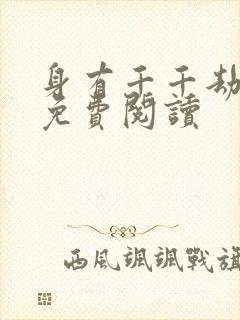 身有千千劫
免費閱讀
西風颯颯戰旗